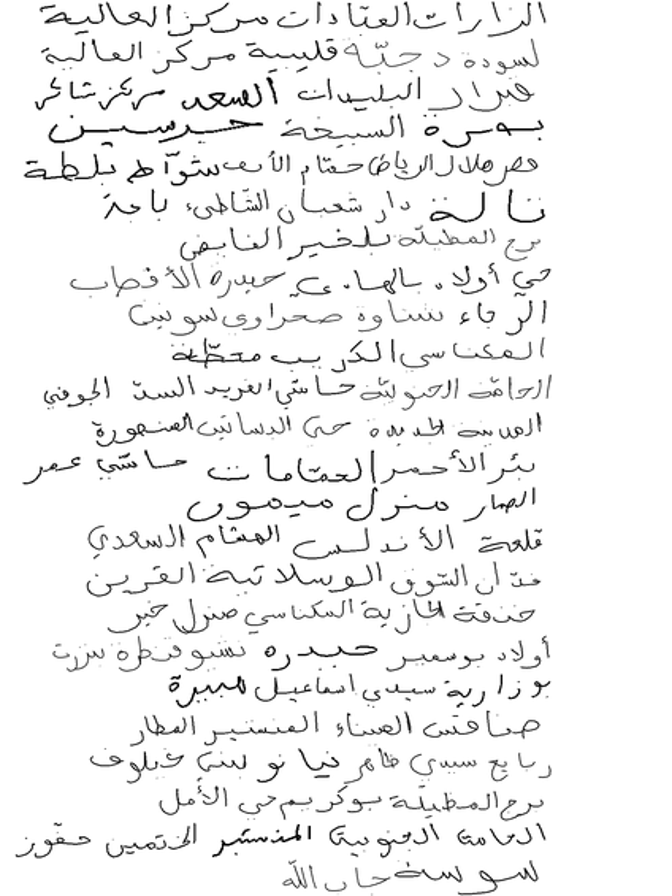 الزارات العبّادات مركز العالية
لسودة دجبّة قليبية مركز العالية
فزار البليدات السعد مركز شاكر
بومرة السبيخة خير سين
قصر هلال الرياض حمّام الأنف شوّاط بلطة
تالة دار شعبان الشاطئ باجة
برج المطيلة بلخير الفايض
حي أولاد بالهادي حيدرة الأقصاب
الرجاء شناوة صحراوي سونين
المكناسي الكريب محطّة
الحامّة الجنوبيّة حاشي الفريد السند الجوفي
المدينة الجديدة حي البساتين المنصورة
بئر الأحمر الحمّامات حاشي عمر
الصمار منزل ميمون
قلعة الأندلس الهشام السعدي
فدّان السّوق الوسلاتية القرين
خنقة الجازية المكناسي منزل خير
أولاد بوسمير حيدرة نسيو قنطرة بنزرت
بوزارية سيدي اسماعيل
صفاقس الميناء المنستير المطار
ربايع سيدي ظاهر نيانو لبنى مخلوف
برج المطيلّة بوكريم حي الأمل
الحامة الجنوبية المنستير الختمين حفّوز
سوسة جاب اللّه